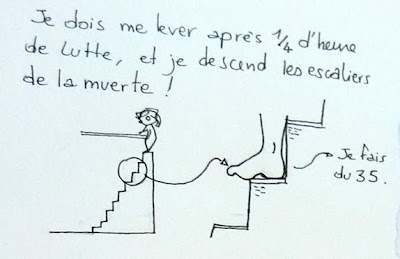 Je dois me lever après 1/4 d'heure
de lutte, et je descend les escaliers
de la muerte !
Je fais
du 35.